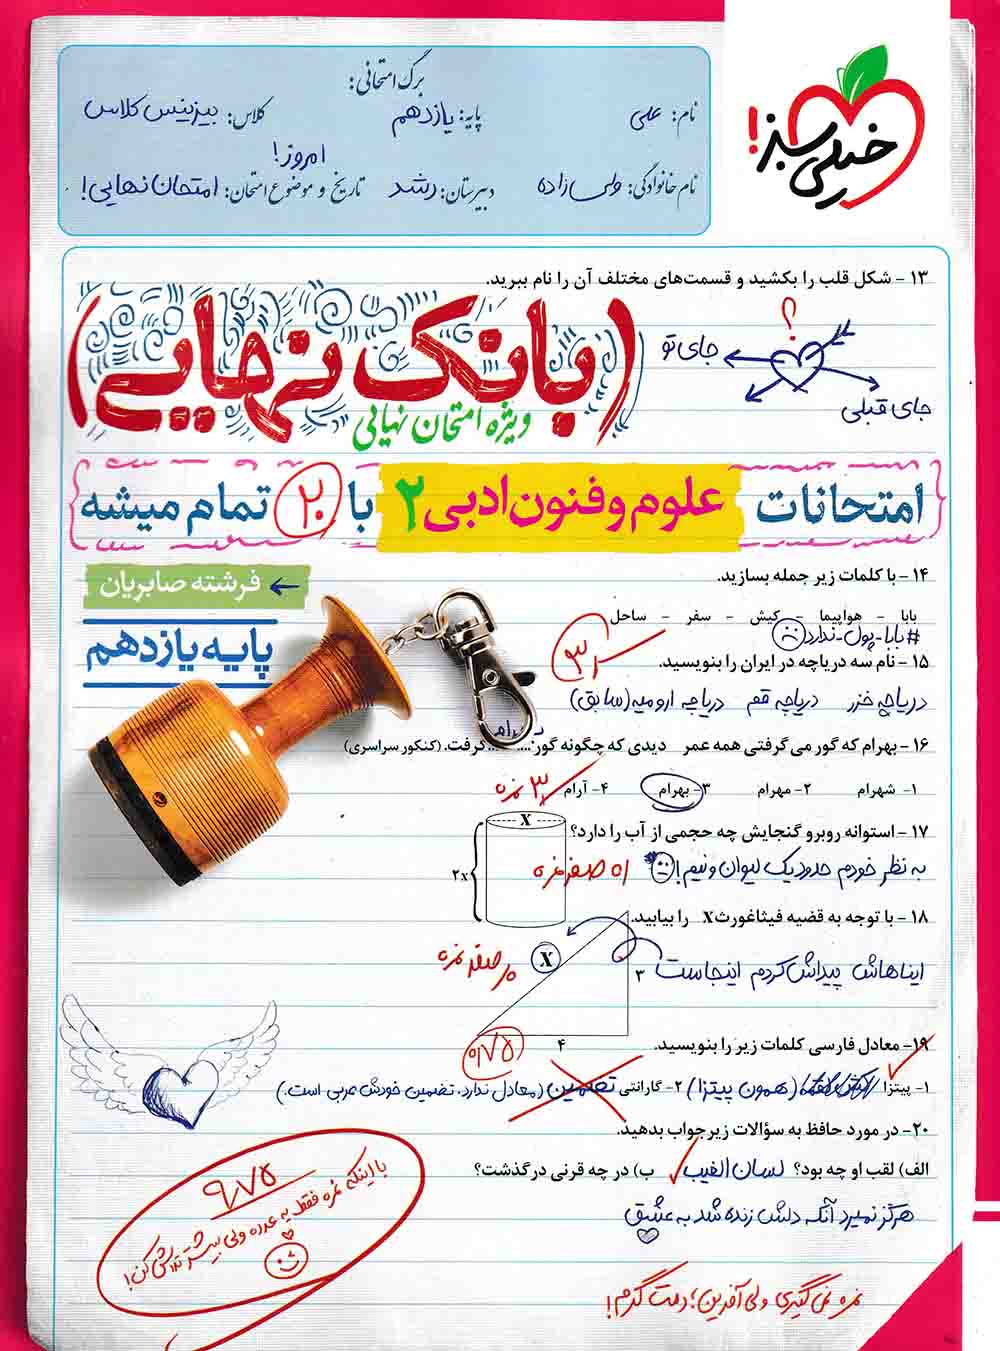 برگ امتحانی:
نام: علی
پایه: یازدهم
کلاس: بیزینس کلاس
نام خانوادگی: ولی زاده
دبیرستان: رشد
تاریخ و موضوع امتحان: امتحان نهایی!
امروز!
خیلی سبز!
۱۳ - شکل قلب را بکشید و قسمت‌های مختلف آن را نام ببرید.
؟
جای تو
جای قبلی
(بانک نهایی)
ویژه امتحان نهایی
امتحانات علوم و فنون ادبی ۲ با ۲۰ تمام میشه
فرشته صابریان
پایه یازدهم
۱۴ - با کلمات زیر جمله بسازید.
بابا - هواپیما - کیش - سفر - ساحل
#بابا-پول-ندارد
۱۵ - نام سه دریاچه در ایران را بنویسید.
دریاچه خزر دریاچه قم دریاچه ارومیه (سابق)
۱۶ - بهرام که گور می گرفتی همه عمر دیدی که چگونه گور: ........ گرفت. (کنکور سراسری)
۱- شهرام ۲- مهرام ۳- بهرام ۴- آرام
۳ نمره
۱۷ - استوانه روبرو گنجایش چه حجمی از آب را دارد؟
X
۲x
به نظر خودم حدود یک لیوان و نیم!
اه صفر نمره
۱۸ - با توجه به قضیه فیثاغورث X را بیابید.
X
۳
۴
ایناهاش پیداش کردم اینجاست
صفر نمره
۱۹ - معادل فارسی کلمات زیر را بنویسید.
۰/۷۵
۱- پیتزا (همون پیتزا) ۲- گارانتی تضمین (معادل ندارد. تضمین خودش عربی است.)
۲۰- در مورد حافظ به سؤالات زیر جواب بدهید.
الف) لقب او چه بود؟ لسان الغیب ب) در چه قرنی درگذشت؟
هرگز نمیرد آنکه دلش زنده شد به عشق
۹/۷۵
با اینکه نمره فقط یه عدده ولی بیشتر تلاش کن!
نمره نمی گیری ولی آفرین؛ دمت گرم!